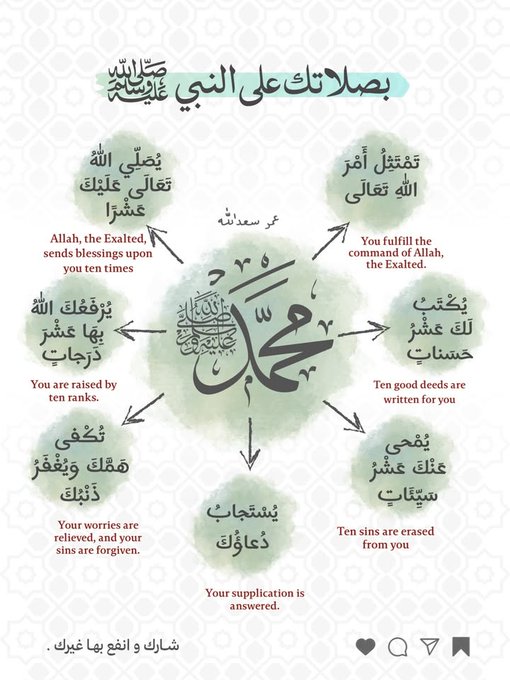 بصلاتك على النبي ﷺ
تَمْتَثِلُ أَمْرَ
اللهِ تَعَالَى
You fulfill the
command of Allah,
the Exalted.
يُصَلِّي اللهُ
تَعَالَى عَلَيْكَ
عَشْرًا
Allah, the Exalted,
sends blessings upon
you ten times
عمر سعدالله
محمد ﷺ
يُكْتَبُ
لَكَ عَشْرُ
حَسَناتٍ
Ten good deeds are
written for you
يُرْفَعُكَ اللهُ
بِهَا عَشْرَ
دَرَجاتٍ
You are raised by
ten ranks.
يُمْحى
عَنْكَ عَشْرُ
سَيِّئَاتٍ
Ten sins are erased
from you
تُكْفى
هَمَّكَ وَيُغْفَرُ
ذَنْبُكَ
Your worries are
relieved, and your
sins are forgiven.
يُسْتَجابُ
دُعاؤُكَ
Your supplication is
answered.
شارك و انفع بها غيرك .